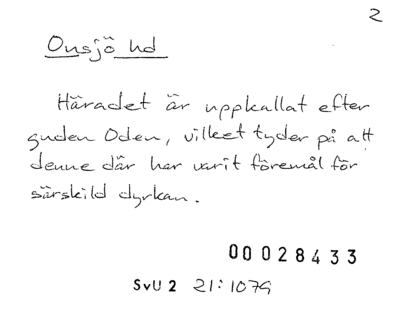 2
Onsjö hd
Häradet är uppkallat efter
guden Oden, vilket tyder på att
denne där har varit föremål för
särskild dyrkan.
00028433
SvU 2 21:1079